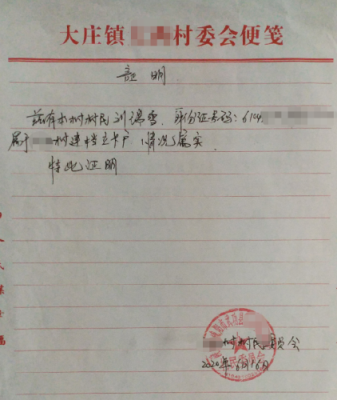 大庄镇 村委会便笺
证明
兹有本村村民刘 雪,身份证号码:614
属于 村建档立卡户,情况属实。
特此证明
村村民委员会
2020年6月16日